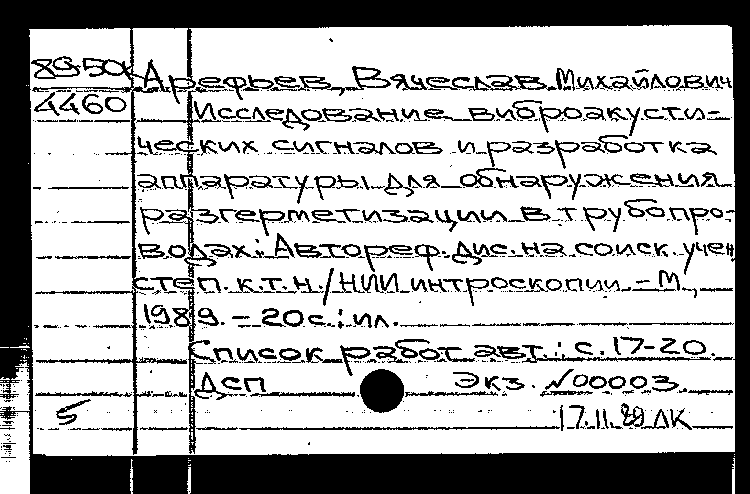 89-50к Арефьев, Вячеслав Михайлович
4460 Исследование виброакусти-
ческих сигналов и разработка
аппаратуры для обнаружения
разгерметизации в трубопро-
водах: Автореф. дис. на соиск. учен
степ. к.т.н. / НИИ интроскопии. - М.,
1989. - 20 с.: ил.
Список работ авт.: с. 17-20.
ДСП Экз. №00003.
5 17.11.89 ЛК